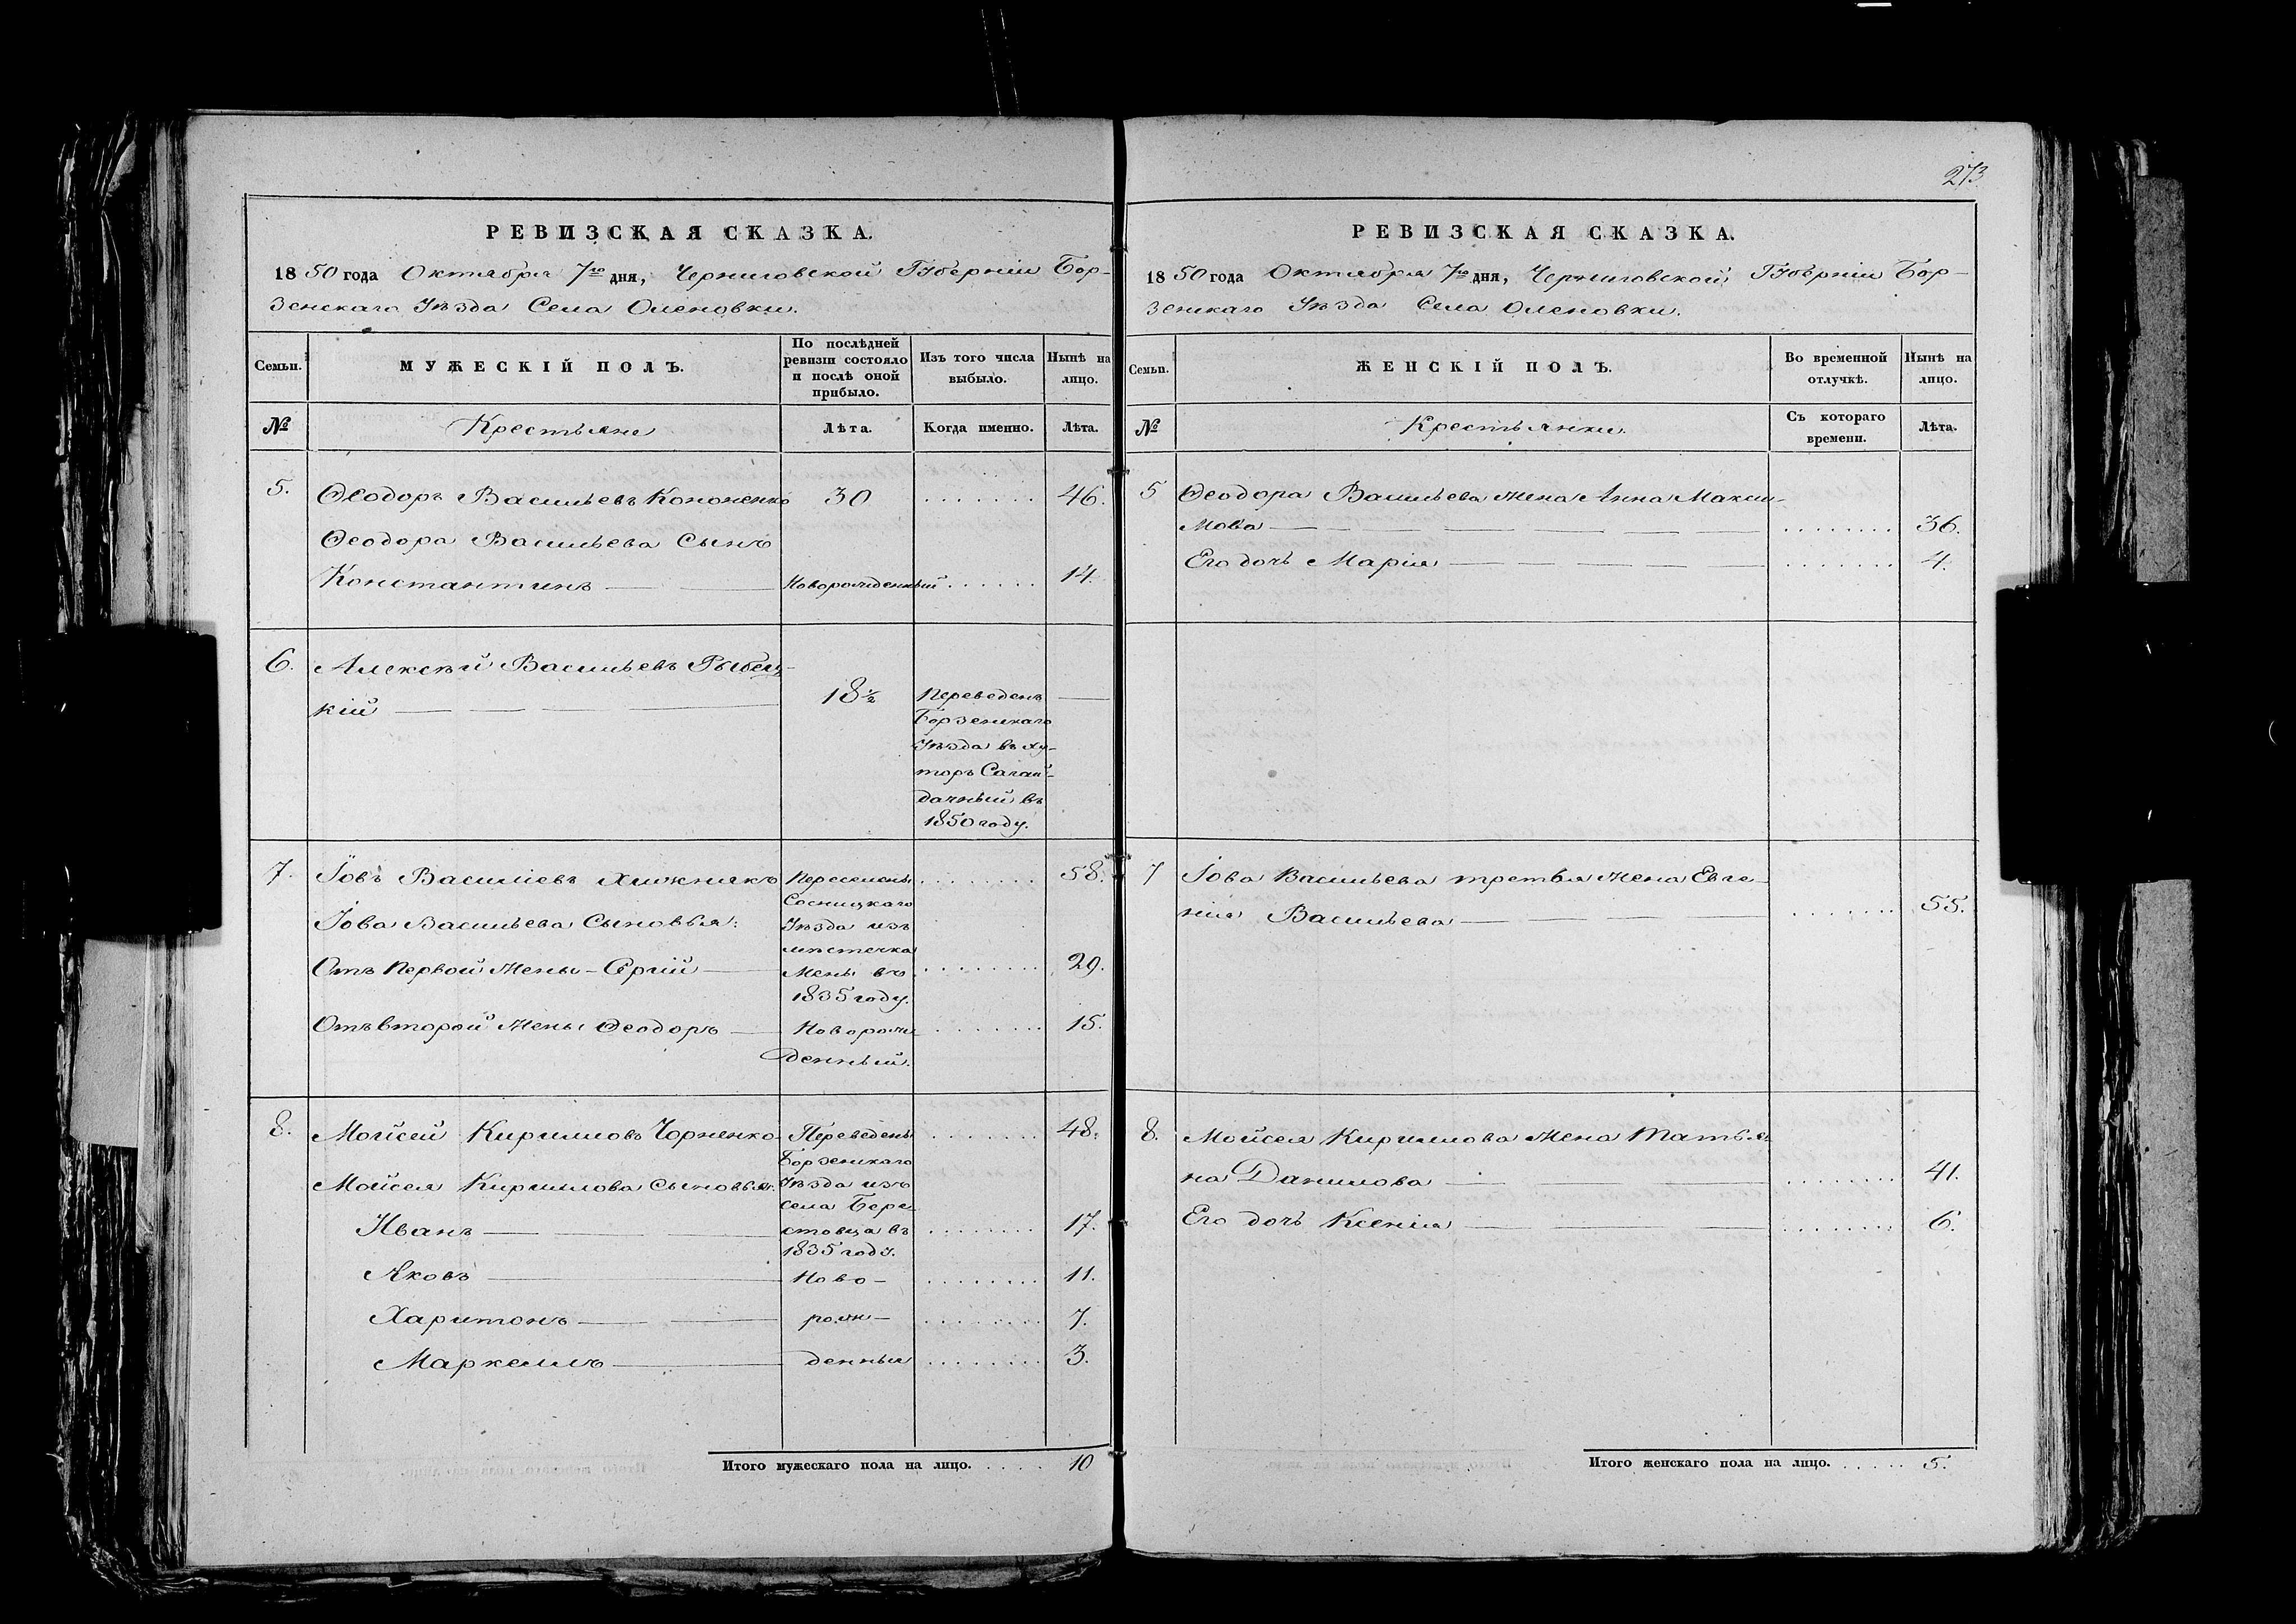 РЕВИЗСКАЯ СКАЗКА.
1850 года Октября 7го дня, Черниговской Губерніи Бор-
зенскаго Уѣзда Села Оленовки.
Семьи.
МУЖЕСКІЙ ПОЛЪ.
По послѣдней ревизіи состояло и послѣ оной прибыло.
Изъ того числа выбыло.
Нынѣ на лицо.
№
Крестьяне
Лѣта.
Когда именно.
Лѣта.
5. Ѳеодоръ Васильевъ Кононенко 30 ........ 46.
Ѳеодора Васильева Сынъ
Константинъ — — Новорожденный ...... 14.
6. Алексѣй Васильевъ Рыбец-
кій — — — — 18½
Переведенъ —
Борзенскаго
Уѣзда въ ху-
торъ Сагай-
дачный въ
1850 году.
7. Іовъ Василіевъ Хижнякъ Переселены ........ 58.
Сосницкаго
Іова Васильева Сыновья: Уѣзда изъ
мѣстечка
Отъ Первой Жены - Сергій — Мены въ ........ 29.
1835 году.
Отъ второй Жены Ѳеодоръ — Новорож ........ 15.
денный.
8. Мойсей Кириловъ Чорненко Переведены ........ 48.
Борзенскаго
Мойсея Кирилова Сыновья: Уѣзда изъ
села Бере
Иванъ — — — стовца въ ........ 17.
1835 году.
Яковъ — Ново- ........ 11.
Харитонъ — — рож- ........ 7.
Маркеллъ — денныя ........ 3.
Итого мужескаго пола на лицо. .... 10
273
РЕВИЗСКАЯ СКАЗКА.
1850 года Октября 7го дня, Черниговской Губерніи Бор-
зенскаго Уѣзда Села Оленовки.
Семьи.
ЖЕНСКІЙ ПОЛЪ.
Во временной отлучкѣ.
Нынѣ на лицо.
№
Крестьянки.
Съ котораго времени.
Лѣта.
5 Ѳеодора Васильева жена Анна Макси-
мова — — — — — ........ 36.
Его дочь Марія — — — — — ........ 4.
7 Іова Васильева третья жена Евге-
нія Васильева — — — ........ 55.
8. Мойсея Кирилова Жена Татья-
на Данилова — — — ........ 41.
Его дочь Ксенія — — — ........ 6.
Итого женскаго пола на лицо. ..... 5.